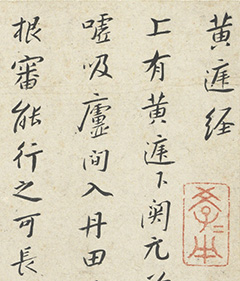 黄庭经
上有黄庭下関元
嘘吸廬间入丹田
根審能行之可長